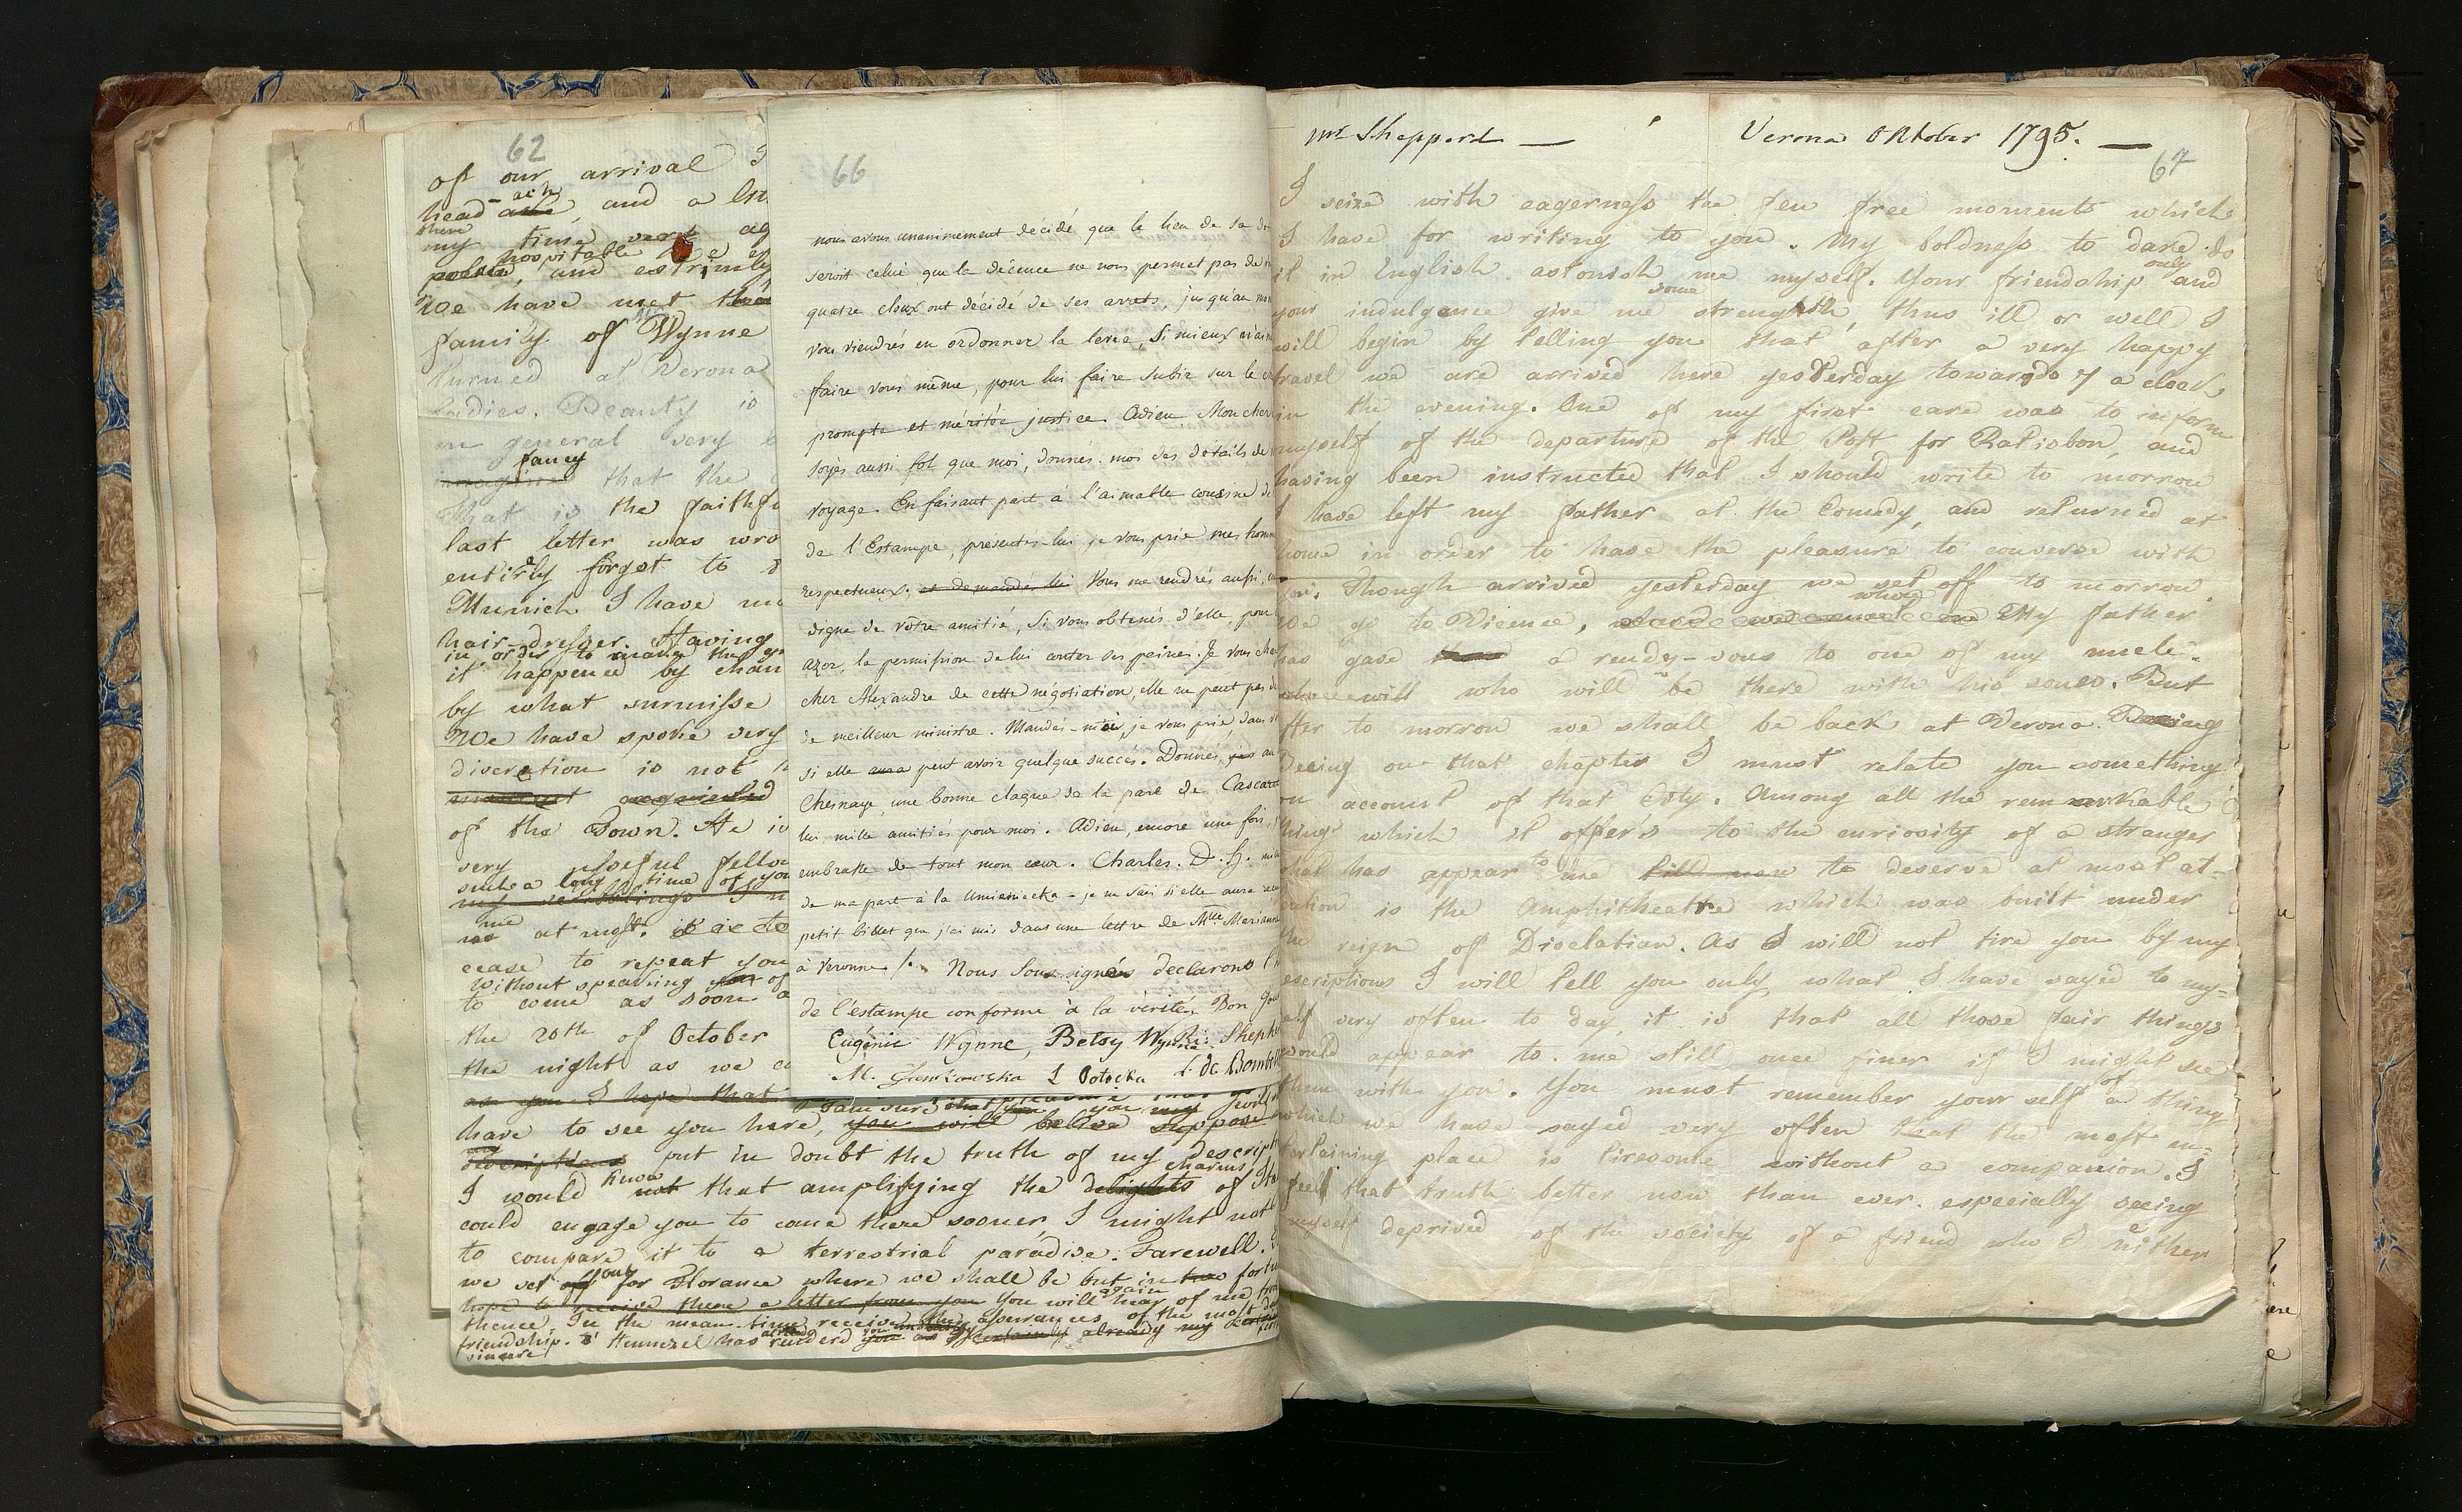 62
of our arrival I
head-ache ach, and a
there
my time were ag
hospitable
polite, and extrimly
We have met thèe
family of Wynne
turned at Verona
Ladies. Beauty is
in general very b
fancy
imagine that the
That is the faithfu
last letter was wro
entirly forgot to
Munich. I have
hair-dresser. Having
in order to
it happened by chan
by what surmisse
We have spoke very
discretion is not
acquinted
of the Town. He is
very usefful fello
such a long time of you
my scribblings I
me
at night.
cease to repeat you
without speaking of
to come as soon a
the 20th of October
the night as we
as you I hope that
I am sure that you my
have to see you here, you will believe suppose
my
descriptions put in doubt the truth of my descript
know charms
I would not that amplifying the delights of
could engage you to come there sooner, I might not
to compare it to a terrestrial paradise. Farewell.
we set off out for Florance where we shall be but in two
hope to receive there a letter from you You will again hear of me from
thence. In the mean-time receive the assurances of the most
friendship. Hennezel has renderd you already my
sincere
66
nous avons unanimement décidé que le lieu de sa
seroit celui que la décence ne nous permet pas de
quatre cloux ont décidé de ses arrets, jusqu'au
vous viendrés en ordonner la levée, Si mieux
faire vous même, pour lui faire subir sur le
prompte et méritée justice. Adieu Mon cher
soyés aussi fol que moi, donnés-moi des détails de
voyage. En faisant part à l'aimable cousine de
de l'Estampe, presentés-lui je vous prie mes hom
respectueux, et demandés lui Vous me rendrés aussi,
digne de vôtre amitié, Si vous obtenés d'elle, pour
azor, la permission de lui conter ses peines. Je vous
cher Alexandre de cette négotiation, elle ne peut pas
de meilleur ministre. Mandés-moi, je vous prie, dans
si elle aura peut avoir quelque succès. Donnés, au
Chesnaye, une bonne claque de la part de
lui mille amitiés pour moi. Adieu, encore une fois,
embrasse de tout mon cœur. Charles. D. H.
de ma part à la Umieniecka - je ne sais si elle aura
petit billet que j'ai mis dans une lettre de Mlle Marianne
à Veronne /. Nous Soussignés declarons
de l'estampe conforme à la vérité, Bon
Eugénie Wynne, Betsy Wynne
M. L Potocka L de Bombel
Mr Shepperd — Verona Oktober 1795. —
67
I seize with eagerness the few free moments which
I have for writing to you. My boldness to dare do
it in English astonish me myself. Your friendship only and
some
your indulgence give me strenghth, thus ill or well I
will begin by telling you that after a very happy
travel we are arrived here yesterday towards 7 a clock
in the evening. One of my first care was to inform
myself of the departure of the Post for Ratisbon, and
having been instructed that I should write to morrow
I have left my father at the Comedy, and returned at
home in order to have the pleasure to converse with
you. Though arrived yesterday we set off to morrow.
where
We go to Vicence, My father
has gave a rendy-vous to one of my uncle-
will who will be there with his sones. But
after to morrow we shall be back at Verona.
Being on that chapter I must relate you something
on account of that City. Among all the remarkable
things which it offer's to the curiosity of a stranger
to
that has appear me till now to deserve at most at-
tention is the Amphitheatre which was built under
the reign of Dioclatian. As I will not tire you by my
escriptions I will tell you only what I have sayed to my-
self very often to day, it is that all those fair things
would appear to me still once finer if I might see
them with you. You must remember your self of a thing
which we have sayed very often that the most en-
tertaining place is tiresome without a companion. I
feel that truth better now than ever. especially seeing
myself deprived of the society of a friend who I neither